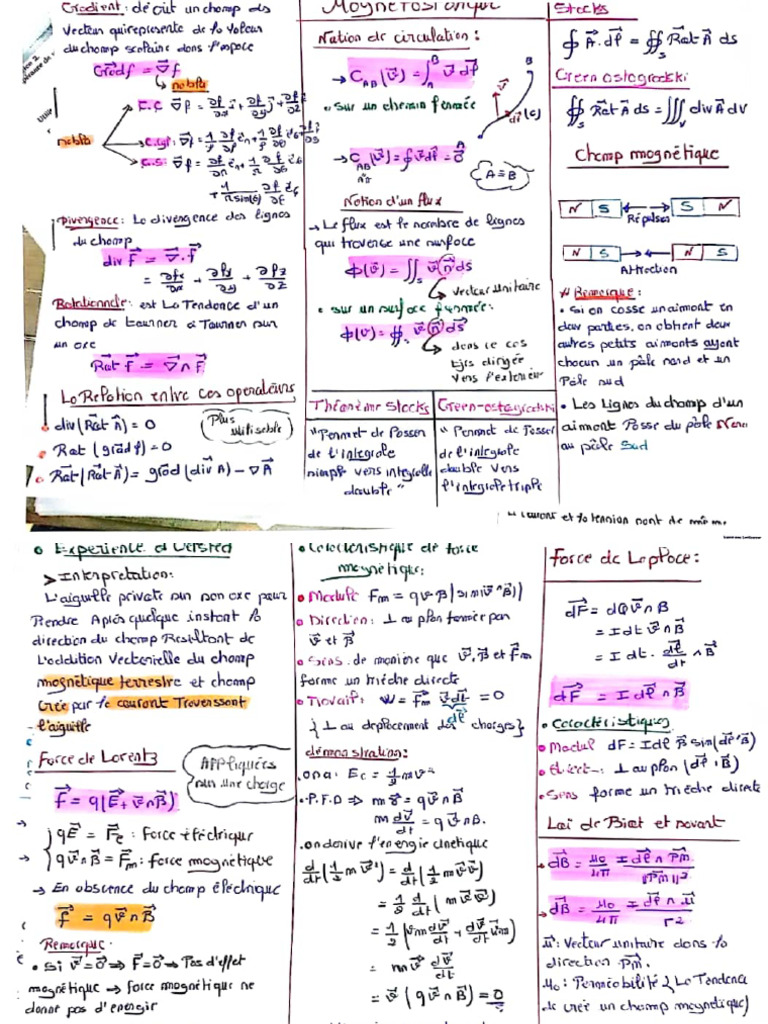 Gradient: décrit un champ des
vecteur qui représente de la valeur
du champ scalaire dans l'espace
Grad f = ∇f
→ nabla
nabla
C.C ∇f = ∂f/∂x i + ∂f/∂y j + ∂f/∂z
C.Cyl: ∇f =
C.S: ∇f =
+ 1/(r sin(θ)) ∂f/∂
Divergence: La divergence des lignes
du champ
div f = ∇.f
= ∂fx/∂x + ∂fy/∂y + ∂fz/∂z
Rotationnelle: est La Tendance d'un
champ de tourner à Tourner sur
un axe
Rot F = ∇∧F
La Relation entre ces operateurs
• div(Rot A) = 0
Plus utilisable
• Rot (grad f) = 0
• Rot(Rot A) = grad (div A) − ∇A
Magnétostatique
Notion de circulation:
→ C_AB(v) = ∫ v dl
• Sur un chemin fermée
C_AB(v) = ∮ v dl =
A ≡ B
B
v
dl (C)
A
Notion d'un flux
→ Le flux est le nombre de lignes
qui traverse une surface
ϕ(v) = ∬s v n ds
→ vecteur unitaire
• sur un surface fermée:
ϕ(v) = ∯s v n ds
→ dans ce cas
tjrs dirigée
vers l'exterieur
Théorème Stocks
"Permet de Passer
de l'integrale
simple vers integrale
double"
Green-ostogradski
"Permet de Passer
de l'integrale
double vers
l'integrale triple
Stocks
∮ A.dl = ∬s Rot A ds
Green ostogradski
∯s Rot A ds = ∭v div A dv
Champ magnétique
N S ↔ S N
Répulses
N S → ← N S
Attraction
# Remarque:
• Si on casse un aimant en
deux parties, on obtient deux
autres petits aimants ayant
chacun un pôle nord et un
Pôle sud
• Les Lignes du champ d'un
aimant Passe du pôle Nord
au pôle Sud
• Experience d'Oersted
➤ Interpretation:
Rendre Après quelque instant la
direction du champ Resultant de
L'addition Vectorielle du champ
magnétique terrestre et champ
crée par le courant Traverssant
l'aiguille
Force de Lorentz
APPliquées
sur une charge
F = q(E + v∧B)
qE = Fe : Force éléctrique
q v∧B = Fm : force magnétique
→ En absence du champ éléctrique
f = q v∧B
Remarque:
• Si v=0 ⇒ F=0 → Pas d'effet
magnétique → force magnétique ne
donne pas d'energie
• Caractéristique de force
magnétique:
• Module Fm = q v B |sin(v,B)|
• Direction: ⊥ au plan formée par
v et B
• Sens: de manière que v, B et Fm
forme un trièdre directe
• Travail: W = Fm v dt = 0
dl
{ ⊥ au deplacement des charges }
démonstration:
. on a: Ec = 1/2 m v²
. P.F.D ⇒ m γ = q v∧B
m dv/dt = q v∧B.
. on derive l'energie cinetique
d/dt (1/2 m v²) = d/dt (1/2 m v v)
= 1/2 d/dt (m v v)
= m v dv/dt
= v (q v∧B) = 0
Force de Laplace:
dF = dQ v∧B
= I dt v∧B
= I dt . dl/dt ∧ B
dF = I dl ∧ B
• Caractéristiques
• Modul dF = I dl B sin(dl,B)
• direct-: ⊥ au plan (dl, B)
• Sens forme un trièdre directe
Loi de Biot et savart
→ dB = μ0/4π I dl ∧ PM / ||PM||²
→ dB = μ0/4π I dl ∧ u / r²
u: Vecteur unitaire dans la
direction PM.
μ0: Perméabilité { La Tendence
de crée un champ magnétique }